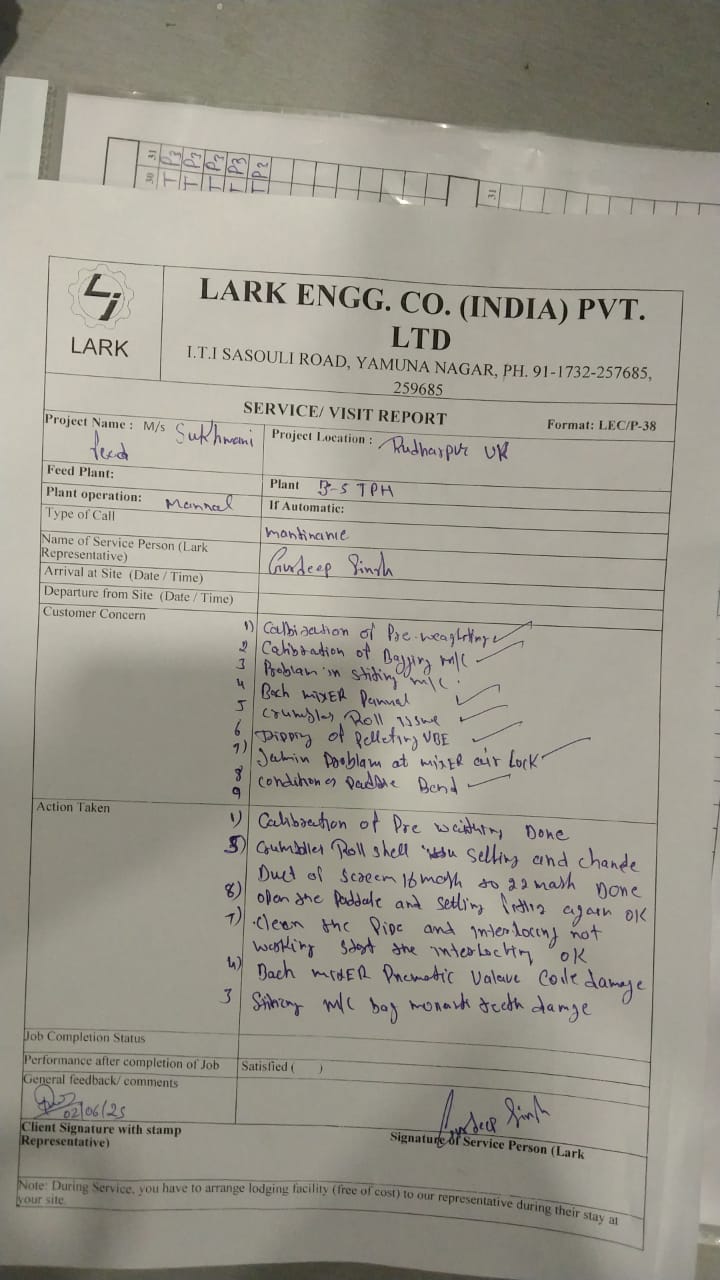 30 31
T P3
T P3
T P3
T P3
T P2
31
LARK
LARK ENGG. CO. (INDIA) PVT.
LTD
I.T.I SASOULI ROAD, YAMUNA NAGAR, PH. 91-1732-257685,
259685
SERVICE/ VISIT REPORT
Format: LEC/P-38
Project Name : M/s Sukhwani
feed
Project Location : Rudharpur UK
Feed Plant:
Plant 3-5 TPH
Plant operation: Mannal
If Automatic:
Type of Call
mantinance
Name of Service Person (Lark
Representative)
Gurdeep Singh
Arrival at Site (Date / Time)
Departure from Site (Date / Time)
Customer Concern
1) Calbiration of Pre-weaghting
2 Calibration of Bagging m/c
3 Problam in stiting m/c.
4 Bach mixER Pannal
5 Crumbler Roll issue
6 Dipping of Pelleting VBE
7) Jamin Problam at mixER air Lock
8 Condition of Paddle Bend
9
Action Taken
1) Calibration of Pre waithing Done
5) Crumbller Roll shell setting and change
Duct of screem 16 mash to 22 mash Done
8) open the Paddale and setting again OK
7) Clean the Pipe and Interlocing not
working start the interlocking OK
4) Bach mixER Pnematic Valave Coile damage
3 Stiting m/c bag teeth damge
Job Completion Status
Performance after completion of Job
Satisfied ( )
General feedback/ comments
02/06/25
Gurdeep Singh
Client Signature with stamp
Representative)
Signature of Service Person (Lark
Note: During Service, you have to arrange lodging facility (free of cost) to our representative during their stay at
your site.